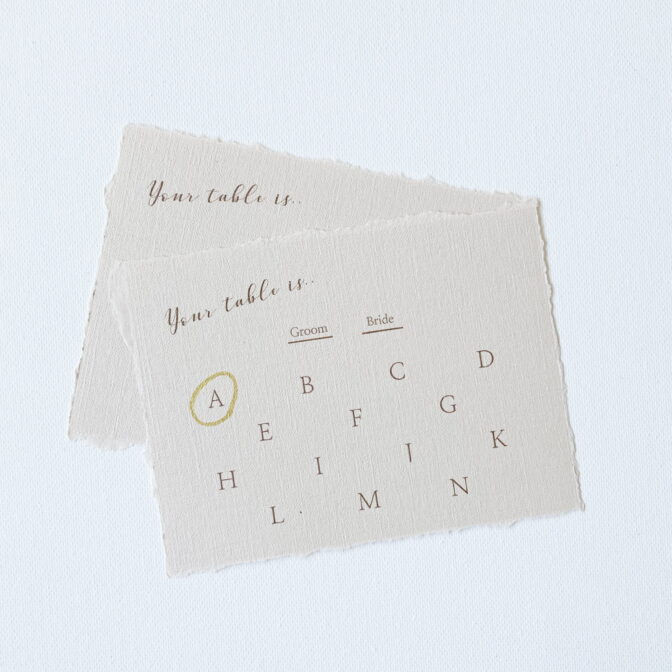 Your table is..
Your table is..
Groom Bride
A B C D
E F G
H I J K
L M N